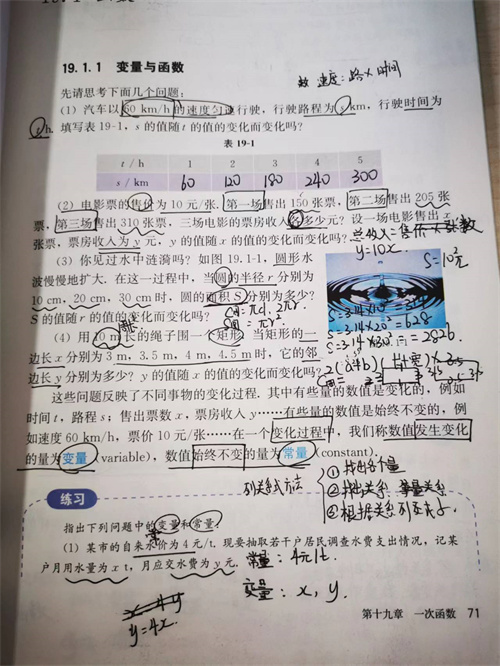 19.1.1 变量与函数
数 速度=路×时间
先请思考下面几个问题:
(1) 汽车以 60 km/h 的速度匀速行驶,行驶路程为 s km,行驶时间为
t h. 填写表 19-1,s 的值随 t 的值的变化而变化吗?
表 19-1
t / h 1 2 3 4 5
s / km 60 120 180 240 300
(2) 电影票的售价为 10 元/张. 第一场售出 150 张票,第二场售出 205 张
票,第三场售出 310 张票,三场电影的票房收入各多少元?设一场电影售出 x
张票,票房收入为 y 元,y 的值随 x 的值的变化而变化吗?
总收入=售价×张数
y=10x.
(3) 你见过水中涟漪吗?如图 19.1-1,圆形水
波慢慢地扩大. 在这一过程中,当圆的半径 r 分别为
10 cm,20 cm,30 cm 时,圆的面积 S 分别为多少?
S 的值随 r 的值的变化而变化吗?
S=10²π
(4) 用 10 m 长的绳子围一个矩形. 当矩形的一
边长 x 分别为 3 m,3.5 m,4 m,4.5 m 时,它的邻
边长 y 分别为多少?y 的值随 x 的值的变化而变化吗?
这些问题反映了不同事物的变化过程. 其中有些量的数值是变化的,例如
时间 t,路程 s;售出票数 x,票房收入 y……有些量的数值是始终不变的,例
如速度 60 km/h,票价 10 元/张……在一个变化过程中,我们称数值发生变化
的量为变量(variable),数值始终不变的量为常量(constant).
列关系式方法
① 找出各个量
② 找出关系 等量关系
③ 根据关系列关系子
练习
指出下列问题中的变量和常量:
(1) 某市的自来水价为 4 元/t. 现要抽取若干户居民调查水费支出情况,记某
户月用水量为 x t,月应交水费为 y 元.
常量:4元/t.
变量:x,y.
y=4x.
第十九章 一次函数 71